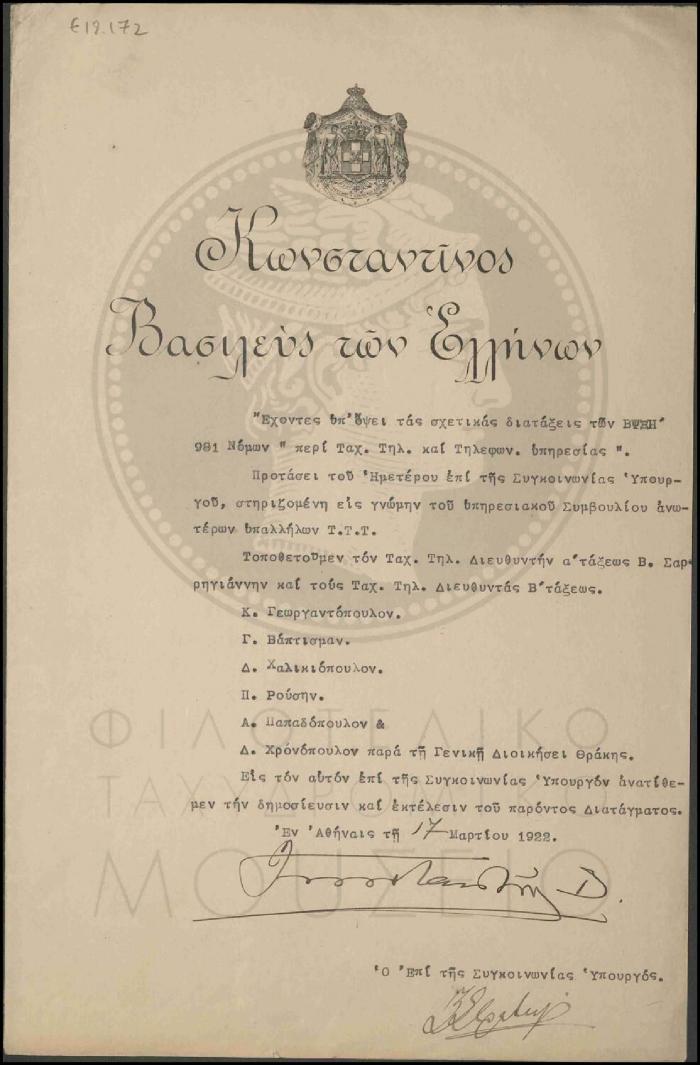 Ε19.172
Κωνσταντῖνος
Βασιλεὺς τῶν Ἑλλήνων
Ἔχοντες ὑπ' ὄψει τάς σχετικάς διατάξεις τῶν ΒΨΞΗ'
981 Νόμων " περί Ταχ. Τηλ. καί Τηλεφων. ὑπηρεσίας ".
Προτάσει τοῦ Ἡμετέρου ἐπί τῆς Συγκοινωνίας Ὑπουρ-
γοῦ, στηριζομένῃ εἰς γνώμην τοῦ ὑπηρεσιακοῦ Συμβουλίου ἀνω-
τέρων ὑπαλλήλων Τ.Τ.Τ.
Τοποθετοῦμεν τόν Ταχ. Τηλ. Διευθυντήν α'τάξεως Β. Σαρ-
ρηγιάννην καί τούς Ταχ. Τηλ. Διευθυντάς Β'τάξεως.
Κ. Γεωργαντόπουλον.
Γ. Βάπτισμαν.
Δ. Χαλικιόπουλον.
Π. Ρούσην.
Α. Παπαδόπουλον &
Δ. Χρόνόπουλον παρά τῇ Γενικῇ Διοικήσει Θράκης.
Εἰς τόν αὐτόν ἐπί τῆς Συγκοινωνίας Ὑπουργόν ἀνατίθε-
μεν τήν δημοσίευσιν καί ἐκτέλεσιν τοῦ παρόντος Διατάγματος.
Ἐν Ἀθήναις τῇ 17 Μαρτίου 1922.
Ὁ Ἐπί τῆς Συγκοινωνίας Ὑπουργός.
ΦΙΛΟΤΕΛΙΚΟ
ΤΑΧΥΔΡΟΜΙΚΟ
ΜΟΥΣΕΙΟ